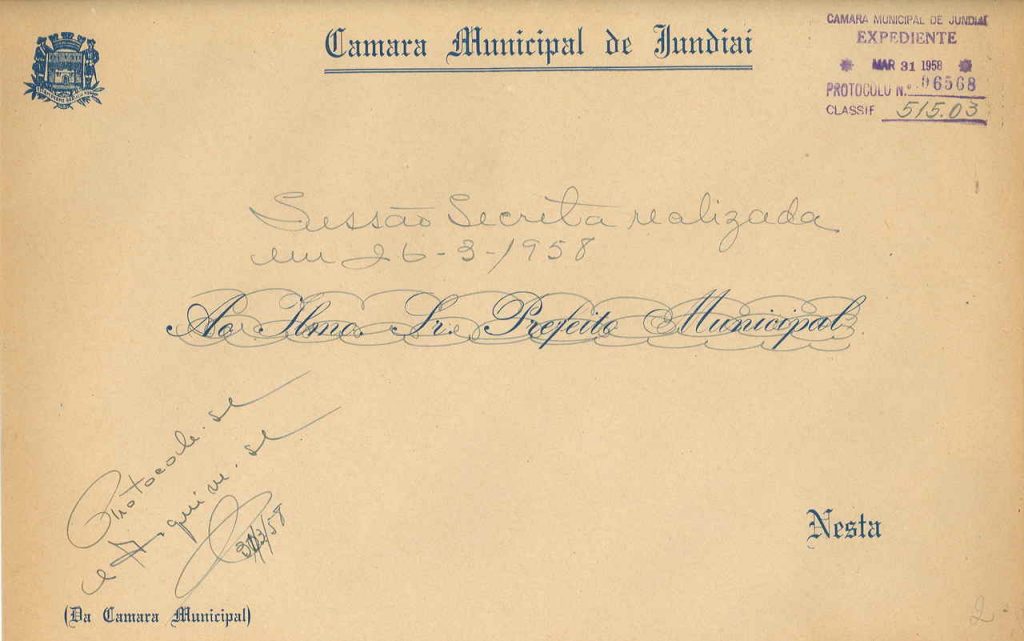 Camara Municipal de Jundiaí
CAMARA MUNICIPAL DE JUNDIAÍ
EXPEDIENTE
MAR 31 1958
PROTOCOLO N.º 06568
CLASSIF 515.03
Sessão Secreta realizada
em 26-3-1958
Ao Ilmo. Sr. Prefeito Municipal
Protocole-se
e Arquive-se
31/3/58
Nesta
(Da Camara Municipal)
2